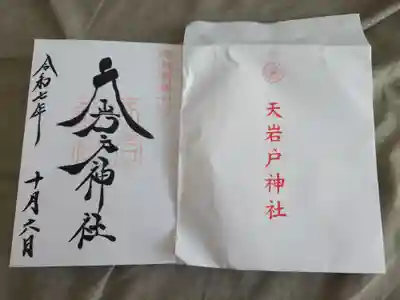 天岩戸神社
令和七年
十月六日
天岩戸神社